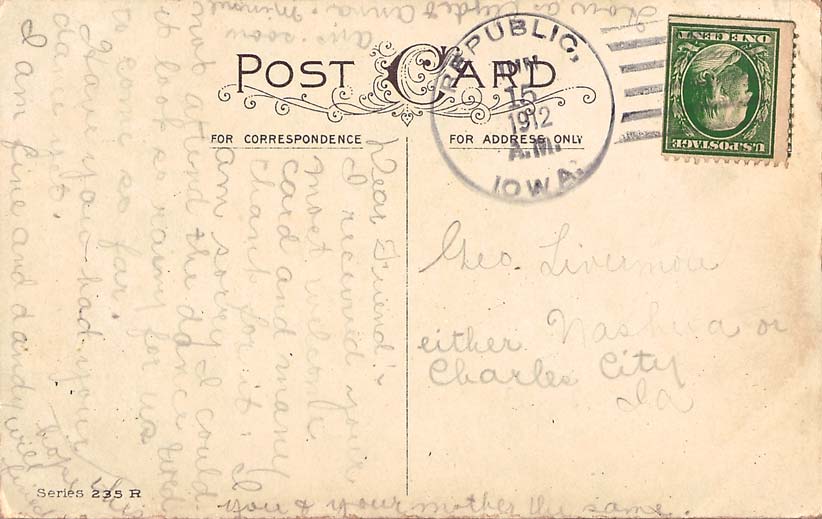 POST CARD
FOR CORRESPONDENCE
FOR ADDRESS ONLY
REPUBLIC,
15
1912
A.M.
IOWA.
U.S. POSTAGE
ONE CENT
Geo. Livermore
either Nashua or
Charles City
Ia
Dear Friend:-
I received your
most welcome
card and many
thanks for it. I
am sorry I could
not attend the dance Wed
it look so rainy for us
to come so far.
Have you had your
dance yet.
I am fine and dandy will
hope this
find
you & your mother the same.
How are Clyde & Anna.
Ans. soon
Series 235 R